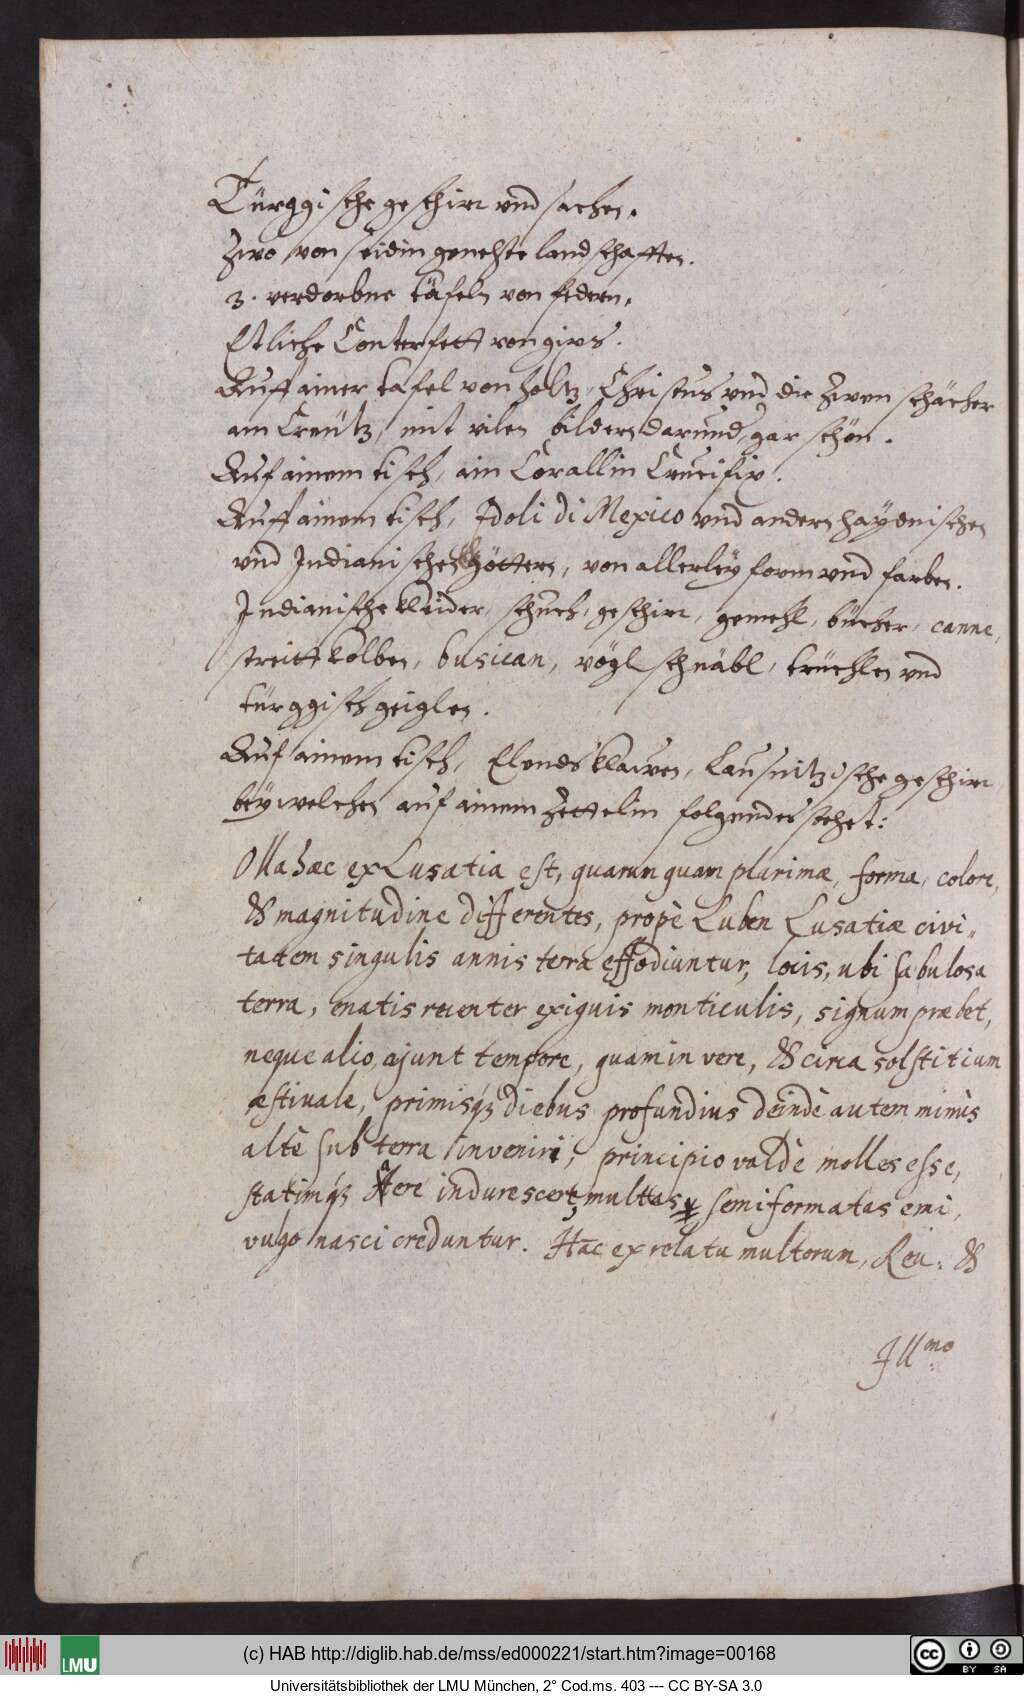 Türggische geschirr vnd sachen.
Zwo von seidin genehte landschafften.
3. verdorbne täfeln von federn.
Etliche Conterfett von gips.
Auff ainer tafel von holtz, Christus vnd die zwen schächer
am Creütz, mit vilen bildern darumb, gar schön.
Auf ainem tisch, ain Corallin Crucifix.
Auff ainem tisch, Idoli di Mexico vnd andern haydnischen
vnd Indianischen Göttern, von allerley form vnd farben.
Indianische kleider, schuch, geschirr, gemehl, bücher, canne,
streittkolben, busican, vögl schnäbl, trüchlen vnd
türggisch geiglen.
Auf ainem tisch, Elends klawen, Lausnitzische geschirr,
bey welchen auf ainem Zettelin folgendes stehet:
Olla hæc ex Lusatia est, quarum quam plurimæ, forma, colore,
& magnitudine differentes, propè Luben Lusatiæ civi„
tatem singulis annis terra effodiuntur, locis, ubi sabulosa
terra, enatis recenter exiguis monticulis, signum præbet,
neque alio, ajunt tempore, quam in vere, & circa solstitium
æstivale, primisq́ȝ diebus profundius deindè autem minùs
altè sub terra inveniri, principio valdè molles esse,
statimq́ȝ Aere indurescere, multas semiformatas emi,
vulgo nasci creduntur. Hæc ex relatu multorum, Reu: &
Ill.mo
(c) HAB http://diglib.hab.de/mss/ed000221/start.htm?image=00168
LMU
CC BY SA
Universitätsbibliothek der LMU München, 2° Cod.ms. 403 --- CC BY-SA 3.0